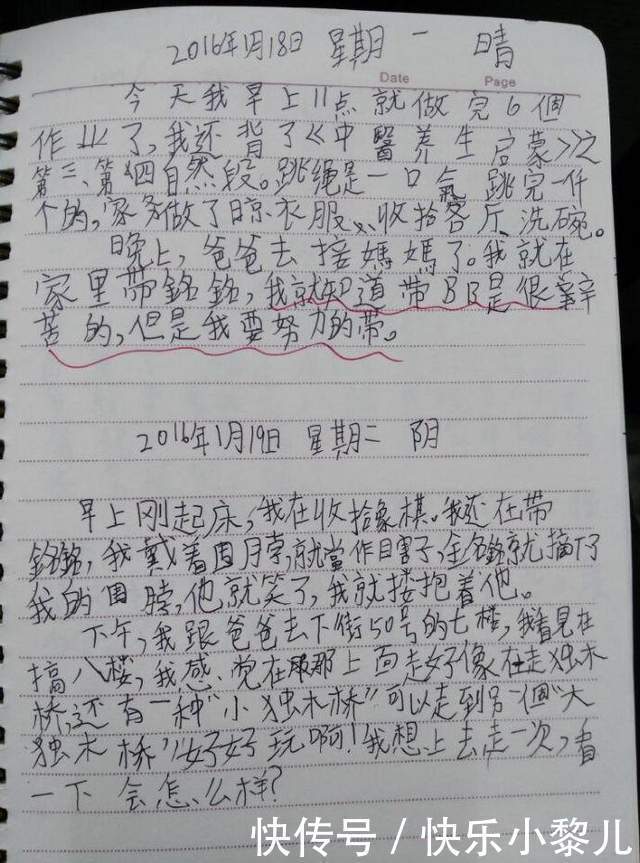 2016年1月18日 星期一 晴
Date Page
今天我早上11点就做完6個
作业了,我还背了《中醫养生启蒙》之
第三、第四自然段。跳绳是一口氣跳完一仟
个的,家务做了晾衣服、收拾客厅、洗碗。
晚上,爸爸去接媽媽了。我就在
家里带銘銘,我就知道带BB是很辛
苦的,但是我要努力的带。
2016年1月19日 星期二 阴
早上刚起床,我在收拾象棋。我还在带
銘銘,我戴着围脖,就當作瞎子,銘銘就摘下
我的围脖,他就笑了,我就搂抱着他。
下午,我跟爸爸去下街50号的七楼,我看見在
搞八楼,我感觉在那上面走好像在走独木
桥,还有一种"小独木桥"可以走到另一個"大
独木桥"!好好玩啊!我想上去走一次,看
一下会怎么样?
快传号 / 快乐小黎儿